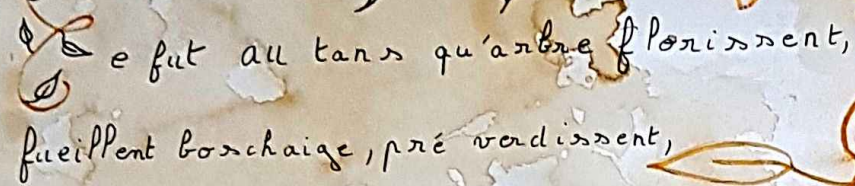 Ce fut au tans qu'arbre florissent,
fueillent boschaige, pré verdissent,